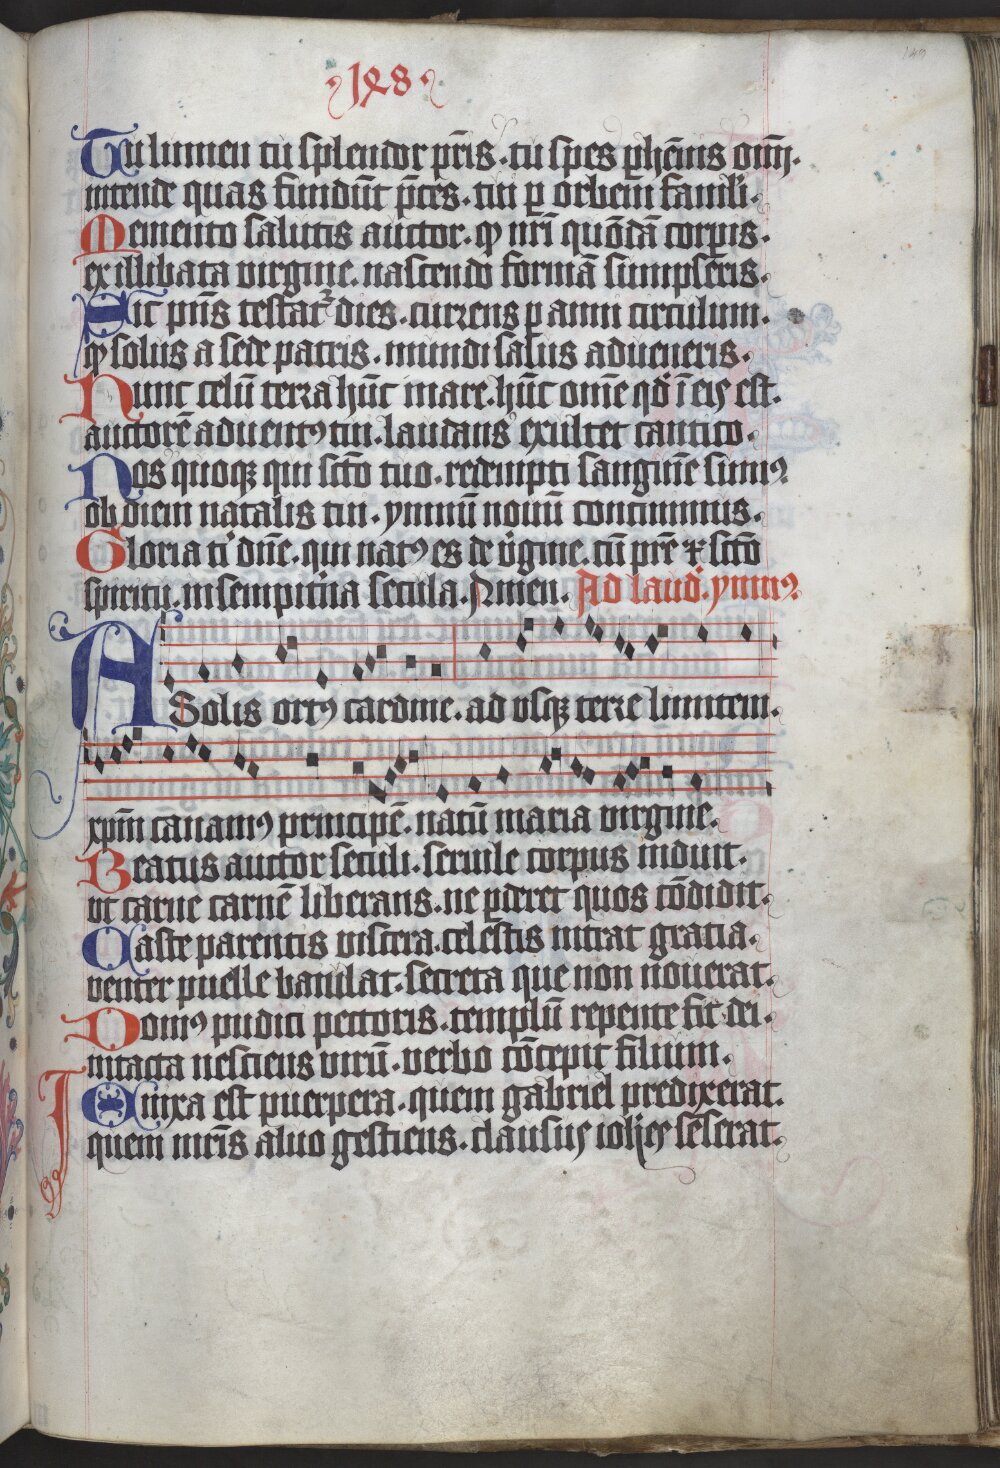 148
Tu lumen tu splendor pr̄is . tu spes ꝑhēnis om̄ .
intende quas fundūt p̄ces . tui ꝑ orbem famīli .
Memento salutis auctor . ꝙ nr̄i quōdā corꝑis .
ex illibata virgine . nascendo formā sumpseris .
Sic pn̄s testatᷣ dies . currens ꝑ anni circulum .
ꝙ solus a sede patris . mundi salus adueneris .
Nunc celū terra hūc mare . hūc om̄e qd̓ ī eis est .
auctorē aduentꝰ tui . laudans exultet cantico .
Nos quoqꝫ qui sc̄o tuo . redempti sanguīe sumꝰ
ob diem natalis tui . ymnū nouū concinimus .
Gloria ti᷒ dn̄e . qui natꝰ es de v̓gine . cū pr̄e ⁊ sc̄o
spiritu . in sempit̓na secula . Amen . Ad laud̓ . ymnꝰ
A Solis ortꝰ cardine . ad vsqꝫ terre limitem .
xpm̄ canamꝰ principē . natū maria virgine .
Beatus auctor seculi . seruile corpus induit .
vt carne carnē liberans . ne ꝑderet quos cōdidit .
Caste parentis viscera . celestis intrat gratia .
venter puelle baiulat . secreta que non nouerat .
Domꝰ pudici pectoris . templū repente fit dei .
intacta nesciens virū . verbo cōcepit filium .
Enixa est puerpera . quem gabriel predixerat .
quem mr̄is aluo gestiens . clausus ioħes senserat .